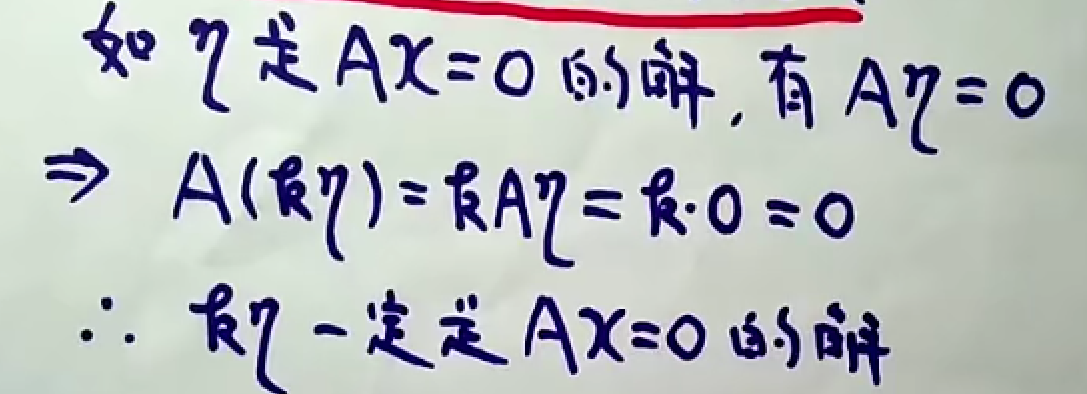 如 η 是 Ax=0 的解, 有 Aη=0
⇒ A(kη)=kAη=k·0=0
∴ kη 一定是 Ax=0 的解